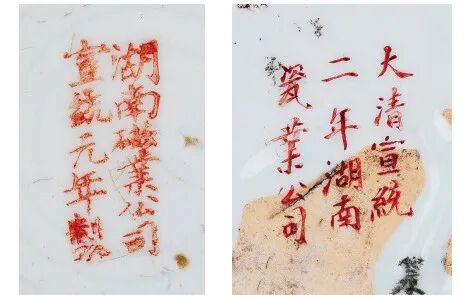 湖南磁業公司
宣統元年製
大清宣統
二年湖南
瓷業公司